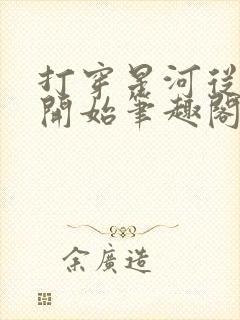 打穿星河從
開始筆趣閣
余廣造